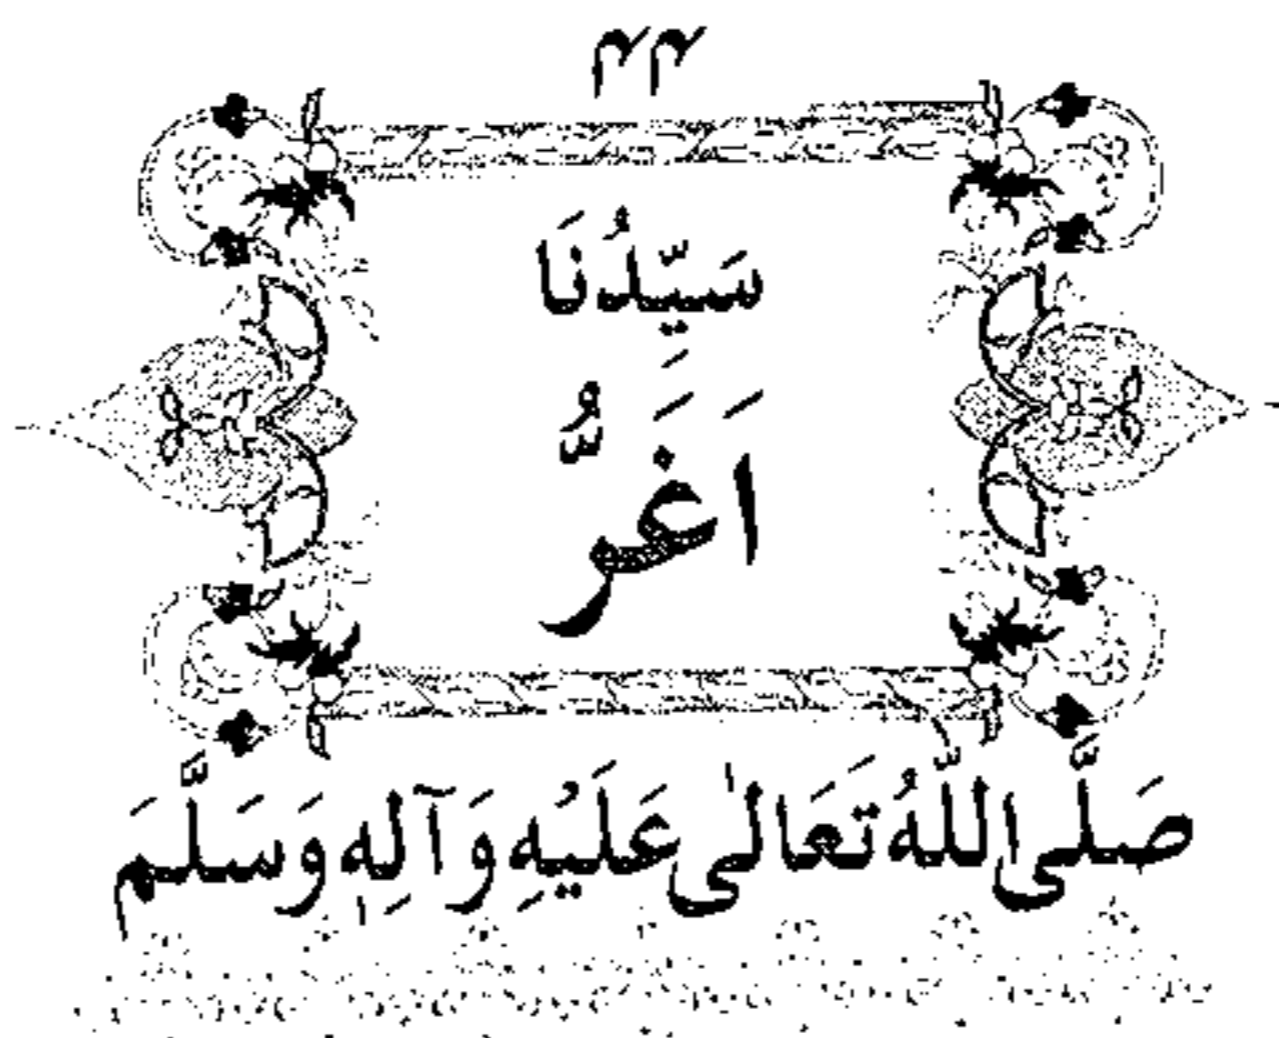 ۴۴
سَيِّدُنَا
اَغَرُّ
صَلَّى اللّٰهُ تَعَالٰى عَلَيْهِ وَآلِهٖ وَسَلَّمَ